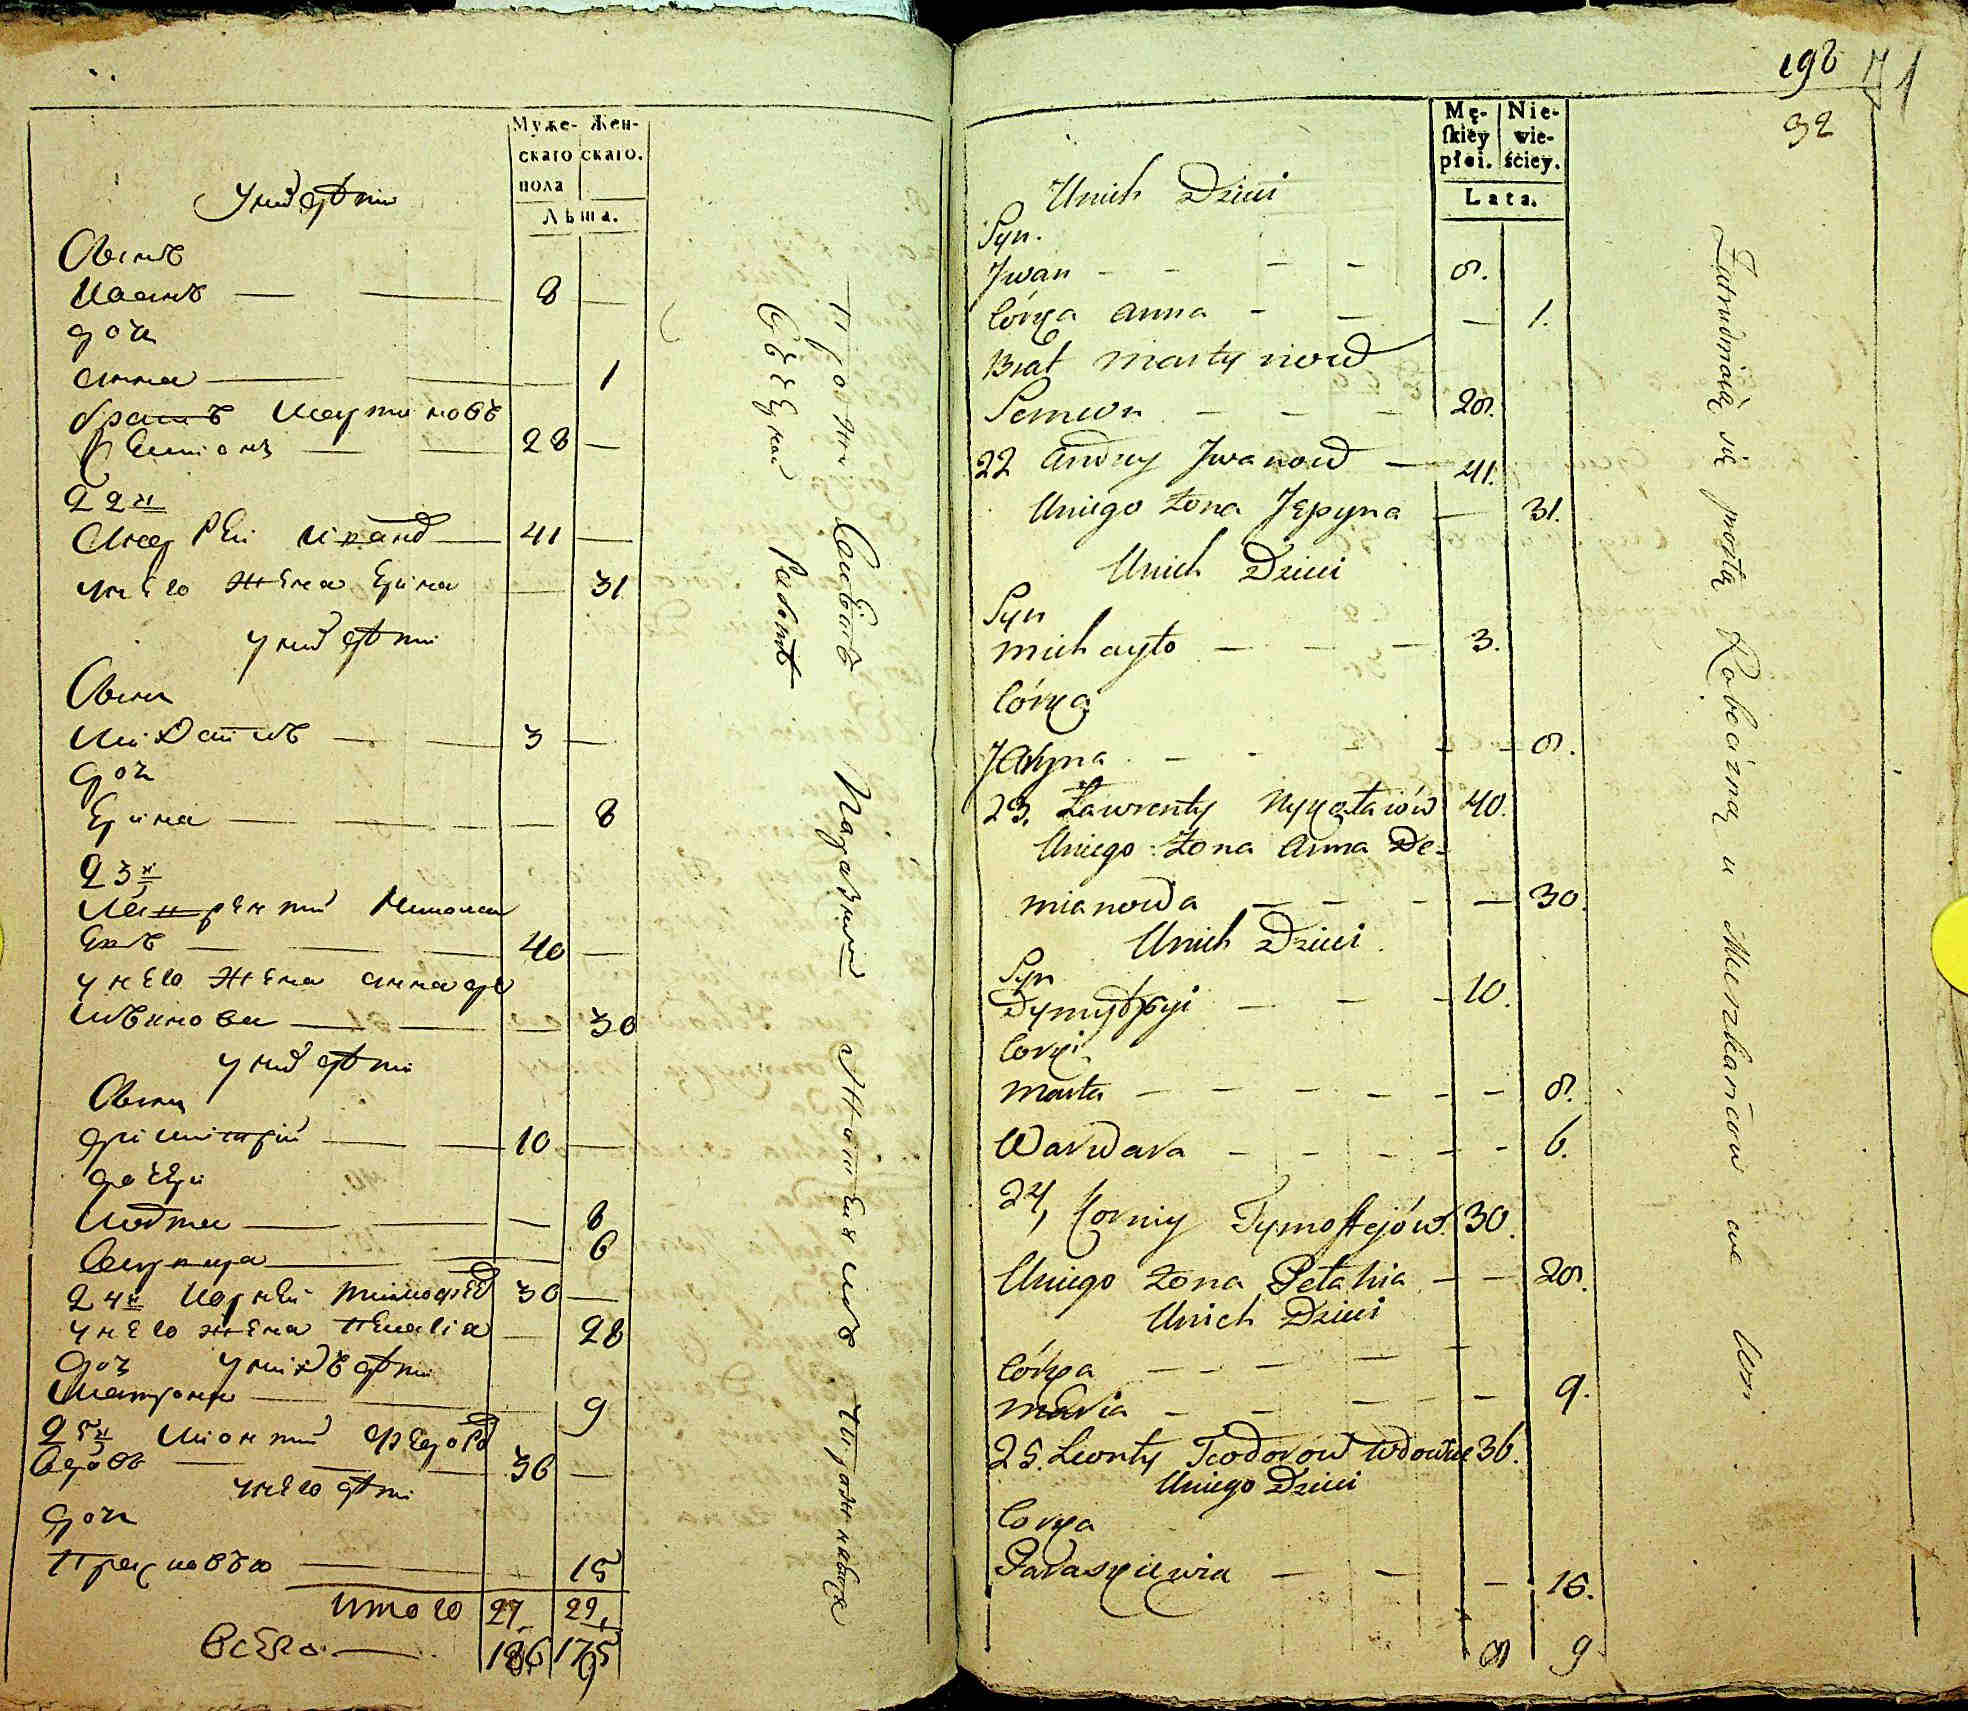 Муже-
скаго
пола
Жен-
скаго.
Лѣта.
у них дѣти
Сынъ
Иванъ — 8 —
дочь
Анна — 1
братъ Мартиновъ
Семіонъ — 28 —
22й
Андрей Иванов — 41 —
у него жена Ирина — 31
у них дѣти
Сынъ
Михайлъ — 3 —
дочь
Ирина — 8
23й
Лаврентій Никола
евъ — 40 —
у него жена Анна де
мьянова — 30
у них дѣти
Сынъ
Димитрій — 10 —
дочери
Марта — 8
Варвара — 6
24й Корней Тимофеев 30 —
у него жена Пелагіа — 28
дочь у нихъ дѣти
Матрона — 9
25й Леонтій Федоров
вдовъ — 36 —
у него дѣти
дочь
Прасковья — 15
итого 27 29
всего — 186 175
198
71
32
Mę-
skiey
płci.
Nie-
wie-
ściey.
Lata.
Unich Dzieci
Syn.
Jwan - - - - 8.
Córka Anna - - — 1.
Brat Martynow
Semeon - - - 28.
22 Andrzy Jwanow — 41.
Uniego Zona Jryna — 31.
Unich Dzieci
Syn
Michayło - - - 3.
Córka
Jryna - - - - 8.
23. Ławrenty Nykołaiów 40.
Uniego Zona Anna De-
mianowa - - - - — 30.
Unich Dzieci
Syn
Dymytryi - - - 10.
Corki
Marta - - - - - - 8.
Warwara - - - - - - 6.
24, Korniy Tymoftejów 30.
Uniego Zona Pelahia - - 28.
Unich Dzieci
Córka - - - - -
Maria - - - - - 9.
25. Leonty Teodorow Wdowiec 36.
Uniego Dzieci
Corka
Paraskiewia - - - 15.
8 9
Zatrudniaią się prostą Robocizną u Mieszkańców we Wsi